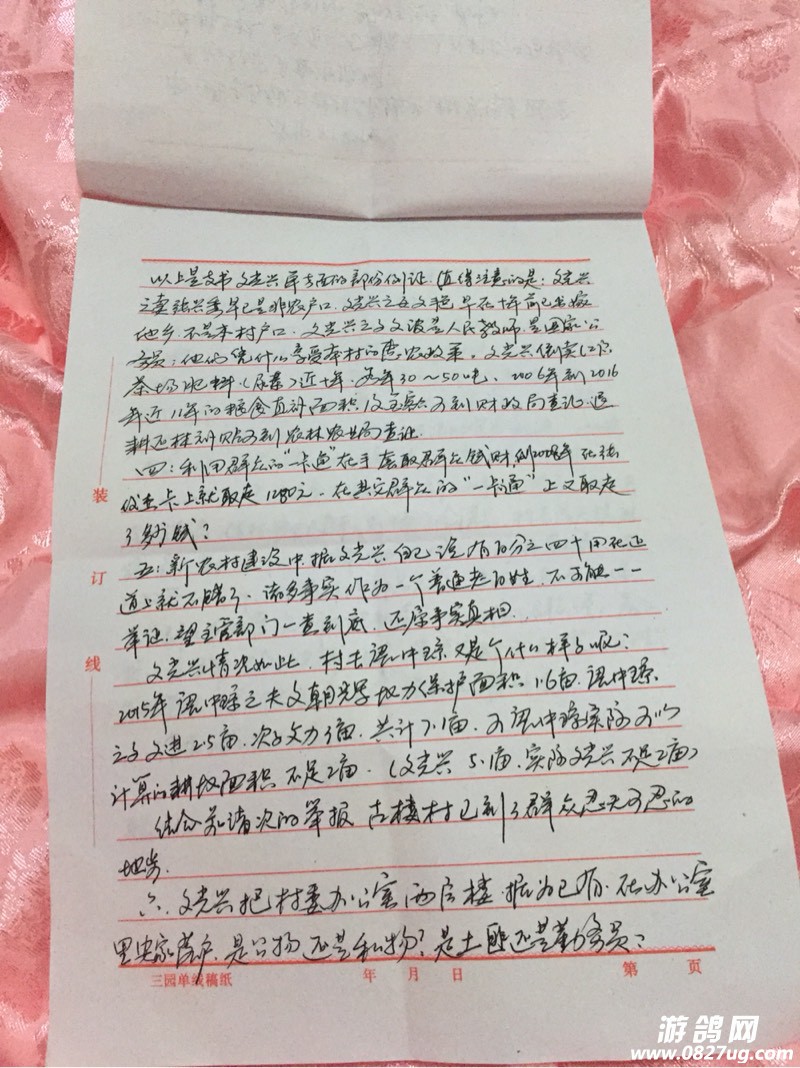 以上是支书文克兴单方面的部份例证.值得注意的是:文克兴
之妻张兴秀早已是非农户口.文克兴之女文艳早在十年前已出嫁
他乡.不是本村户口.文克兴之子文波是人民教师,是国家公
务员:他们凭什么享受本村的惠农政策.文克兴倒卖
茶场肥料(尿素)近十年.每年30～50吨.2006年到2016
年近11年的粮食直补面积及金额可到财政局查证.退
耕还林补贴可到农林农业局查证.
四:利用群众的"一卡通"在手套取群众钱财,例2008年在张
卡上就取走1280元.在其它群众的"一卡通"上又取走
了多少钱?
五:新农村建设中据文克兴自己说有百分之四十用在还
道上就不错了.诸多事实作为一个普通老百姓.不可能一一
举证.望主管部门一查到底.还原事实真相.
文克兴情况如此.村主谭中琼又是个什么样子呢?
2015年谭中琼之夫文朝光享地力保护面积1.6亩.谭中琼
之子文进2.5亩.次子文力3亩.共计7.1亩.可谭中琼实际可以
计算的耕地面积不足2亩.(文克兴5.1亩.实际文克兴不足2亩)
结合前诸次的举报古楼村已到了群众忍无可忍的
地步.
六.文克兴把村委办公室两层楼.据为己有.在办公室
里安家落户.是公物还是私物?是土匪还是勤务员?
装
订
线
三园单线稿纸 年 月 日 第 页
游鸽网
www.0827ug.com